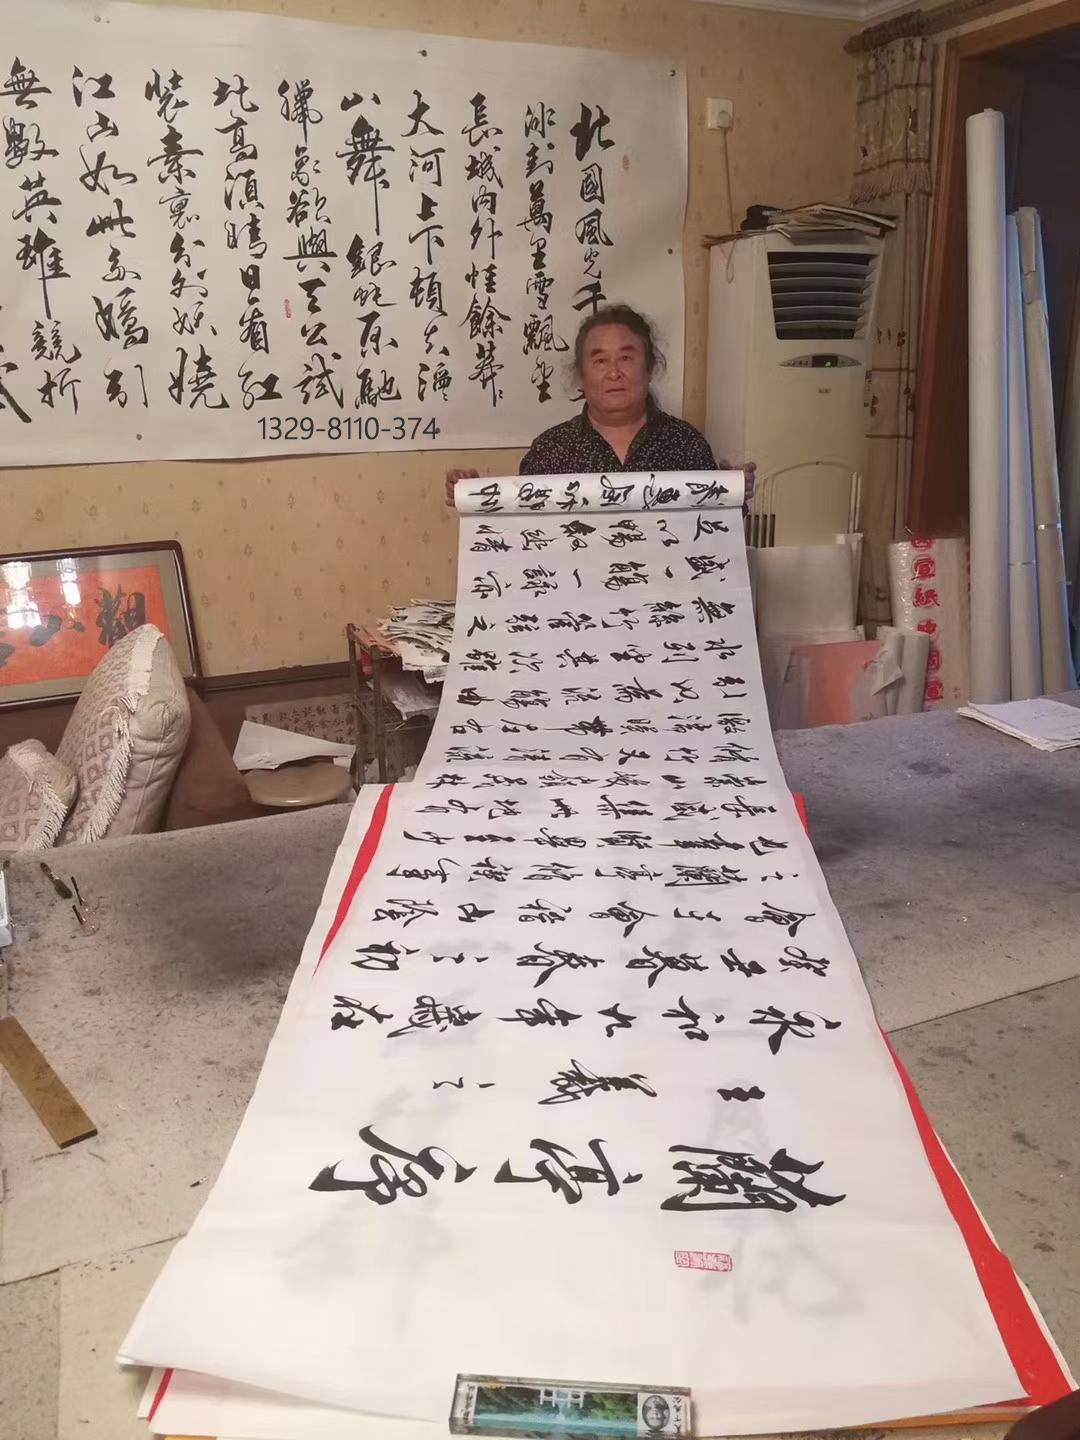 北國風光千
冰封萬里雪飄望
長城內外惟餘莽莽
大河上下頓失滔
山舞銀蛇原馳
臘象欲與天公試
比高須晴日看紅
裝素裹分外妖嬈
江山如此多嬌引
無數英雄競折
1329-8110-374
蘭亭序
王羲之
永和九年歲在
癸丑暮春之初
會于會稽山陰
之蘭亭脩禊事
也羣賢畢至少
長咸集此地有
崇山峻領茂林
脩竹又有清流
激湍暎帶左右
引以為流觴曲
水列坐其次雖
無絲竹管弦之
盛一觴一詠亦
足以暢敘幽情
惠風和暢仰
宣紙中國